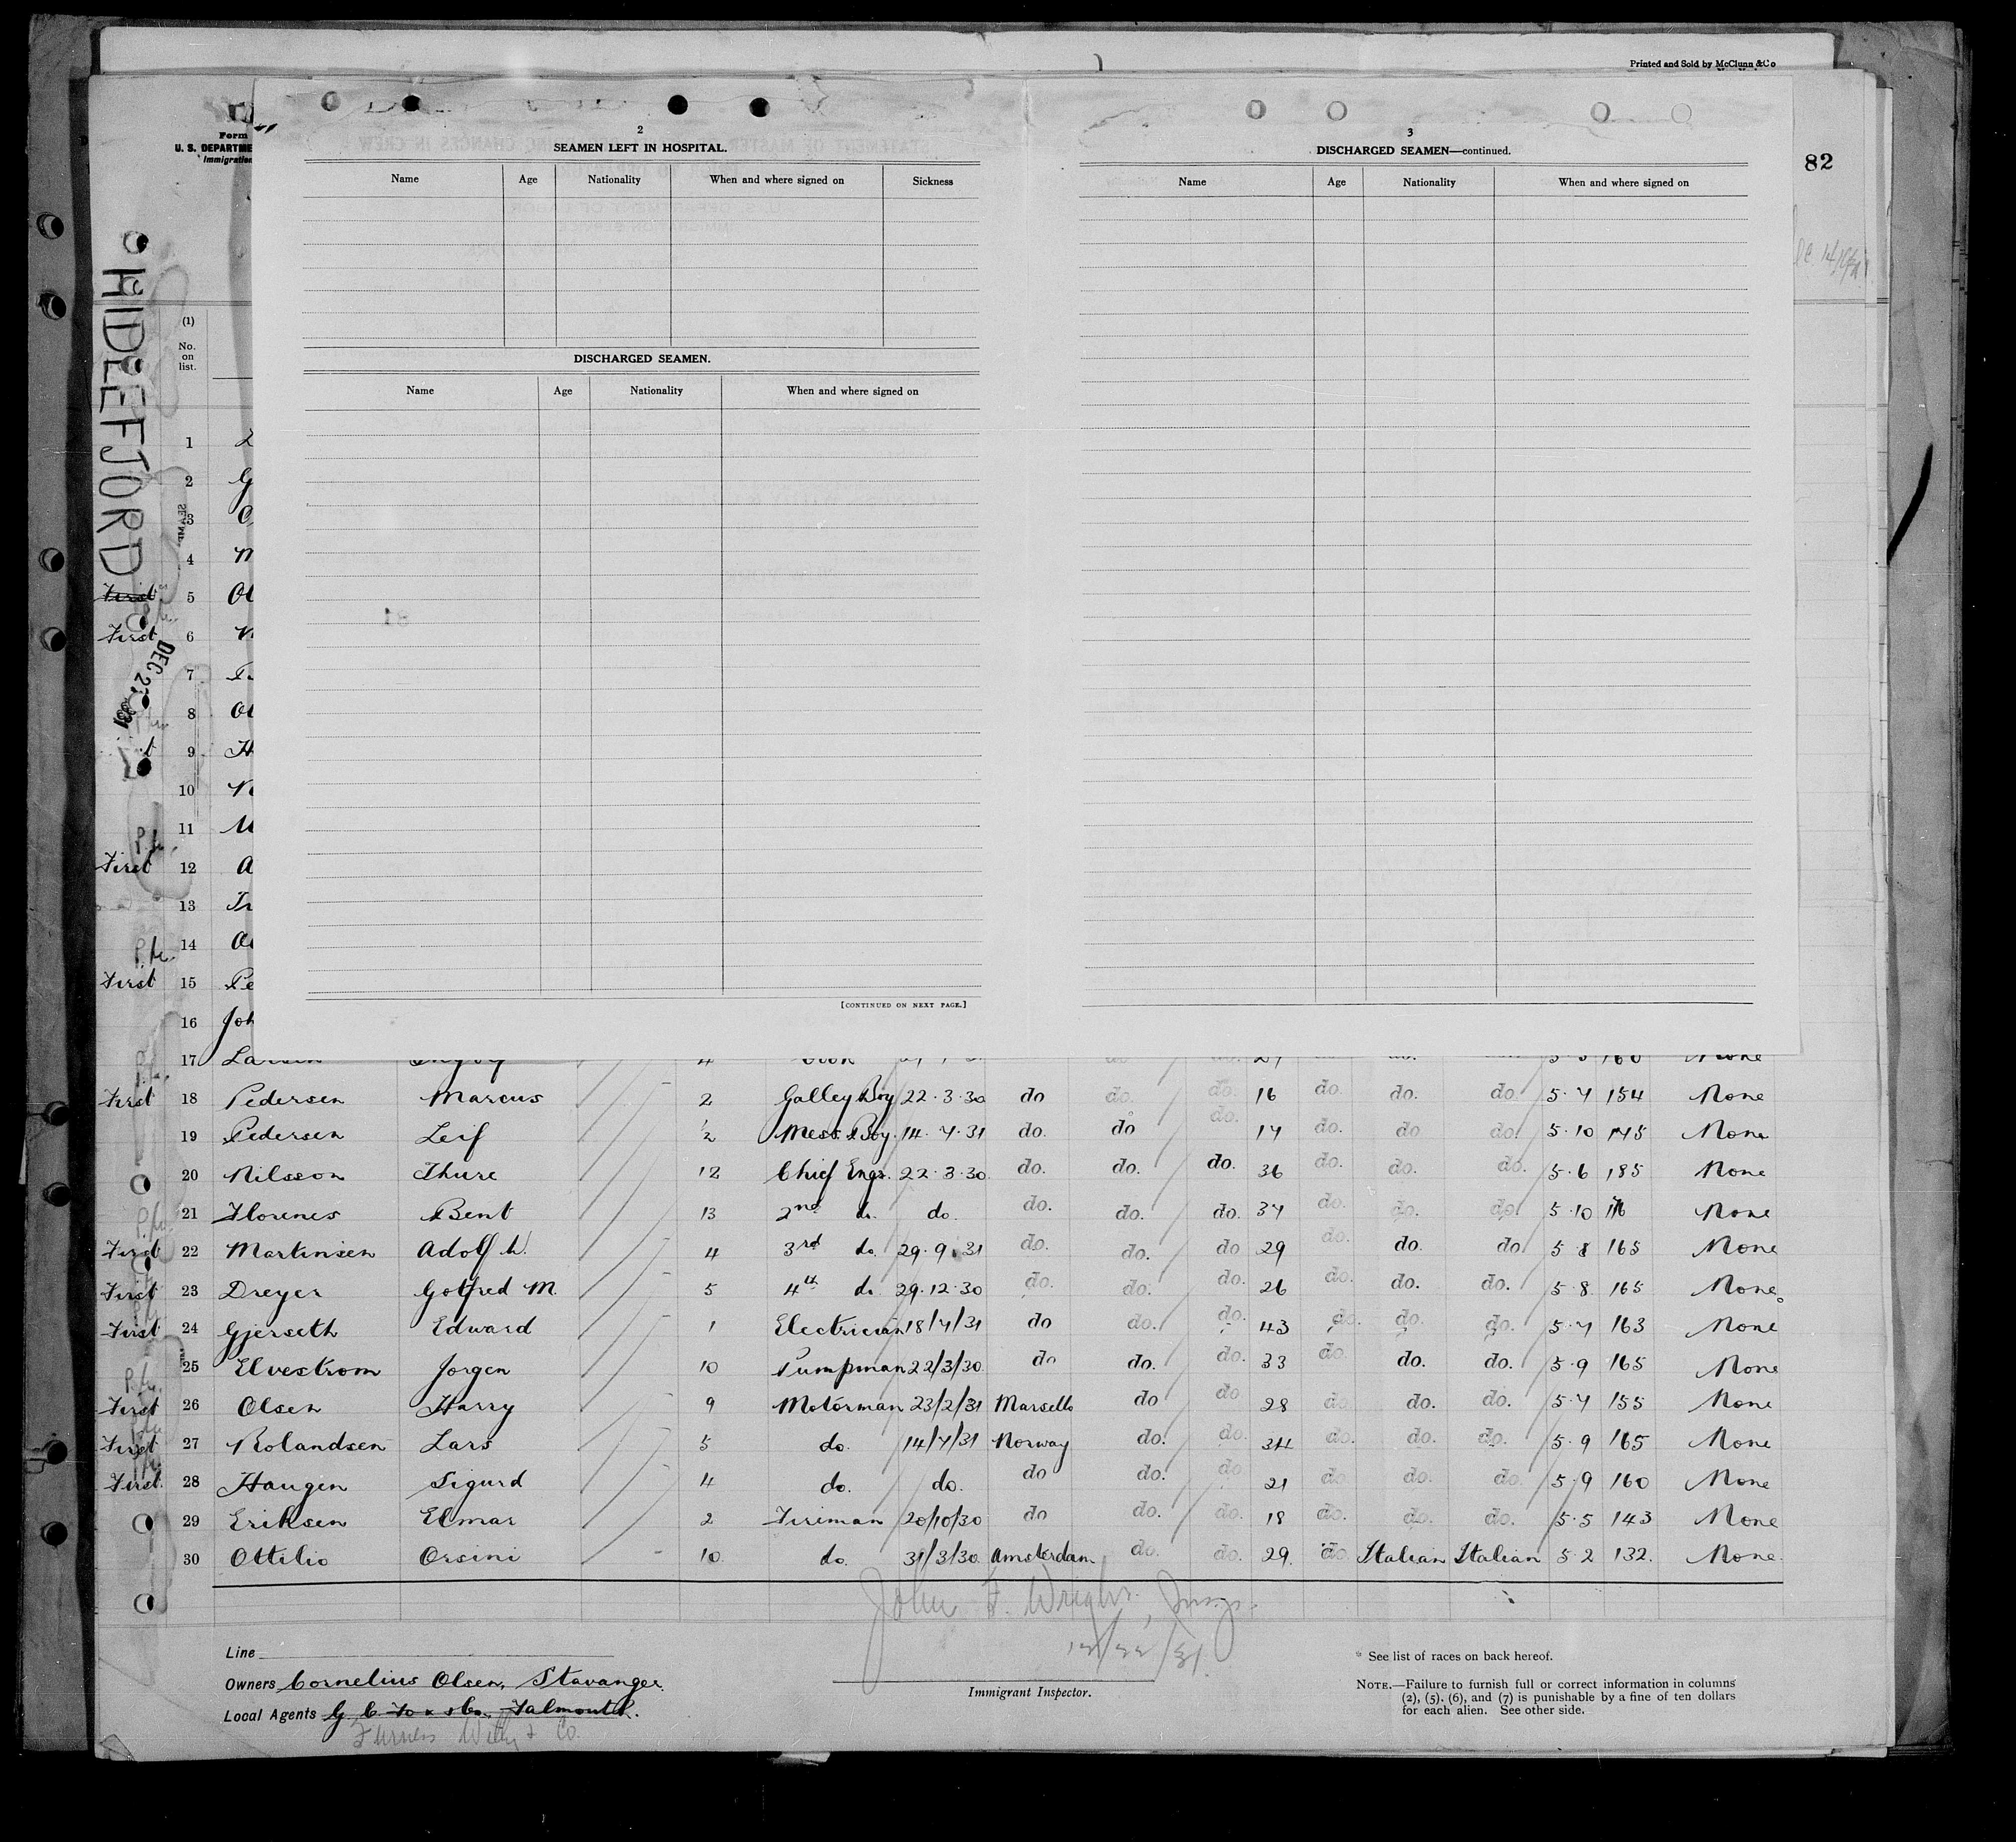 Printed and Sold by McClunn & Co
82
Form
U. S. DEPARTME
Immigration
HIDLEFJORD
DEC 2
2
SEAMEN LEFT IN HOSPITAL.
Name Age Nationality When and where signed on Sickness
DISCHARGED SEAMEN.
Name Age Nationality When and where signed on
[CONTINUED ON NEXT PAGE.]
3
DISCHARGED SEAMEN—continued.
Name Age Nationality When and where signed on
(1)
No.
on
list.
1
2 G
3
4 M
First 5 Ol
First 6
7
8 Ol
9 H
10
11
First 12 A
13
14
First 15 Pe
16 Joh
17 Larsen 4 Cook 160 None
First 18 Pedersen Marcus 2 Galley Boy 22.3.30 do do. do. 16 do. do. do. 5.7 154 None
19 Pedersen Leif 1/2 Mess Boy 14.7.31 do. do do. 17 do. do do. 5.10 145 None
20 Nilsson Thure 12 Chief Engr. 22.3.30 do. do. do. 36 do. do. do. 5.6 185 None
21 Florenes Bent 13 2nd do. do. do. do. do. 37 do. do. do. 5.10 None
First 22 Martinsen Adolf W. 4 3rd do. 29.9.31 do. do. do 29 do. do. do 5.8 165 None
First 23 Dreyer Gotfred M. 5 4th do. 29.12.30 do. do. do. 26 do. do. do. 5.8 165 None
First 24 Gjerseth Edward 1 Electrician 18/7/31 do do. do. 43 do. do. do. 5.7 163 None
25 Elvestrom Jorgen 10 Pumpman 22/3/30 do do. do. 33 do. do. do. 5.9 165 None
First 26 Olsen Harry 9 Motorman 23/2/31 Marsells do do 28 do do. do. 5.7 155 None
First 27 Rolandsen Lars 5 do. 14/7/31 Norway do. do. 34 do. do. do. 5.9 165 None
First 28 Haugen Sigurd 4 do. do. do do. do 21 do do. do. 5.9 160 None
29 Eriksen Elmar 2 Fireman 20/10/30 do do. do. 18 do. do. do. 5.5 143 None
30 Ottilio Orsini 10 do. 31/3/30 Amsterdam do. do. 29. do Italian Italian 5.2 132. None.
John F. Wright, Insp.
12/22/31.
Immigrant Inspector.
Line
Owners Cornelius Olsen, Stavanger.
Local Agents G C Fox & Co. Falmouth.
Furness Withy & Co.
* See list of races on back hereof.
NOTE.—Failure to furnish full or correct information in columns
(2), (5), (6), and (7) is punishable by a fine of ten dollars
for each alien. See other side.